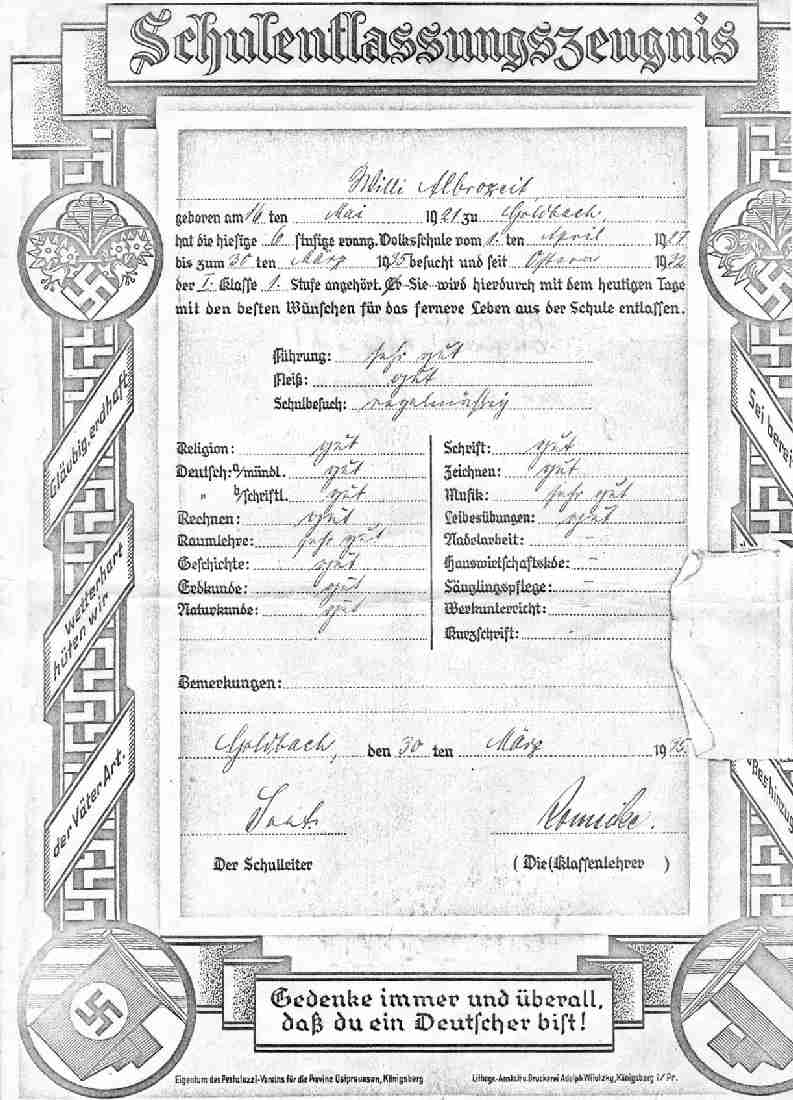 Schulentlassungszeugnis
Willi Albrozeit
geboren am 16 ten Mai 1921 zu Goldbach,
hat die hiesige 6 stufige evang. Volksschule vom 1. ten April 1927
bis zum 30 ten März 1935 besucht und seit Ostern 1932
der I. Klasse 1. Stufe angehört. Er Sie wird hierdurch mit dem heutigen Tage
mit den besten Wünschen für das fernere Leben aus der Schule entlassen.
Führung: sehr gut
Fleiß: gut
Schulbesuch: regelmäßig
Religion: gut
Deutsch: a/mündl. gut
" b/schriftl. gut
Rechnen: gut
Raumlehre: sehr gut
Geschichte: gut
Erdkunde: gut
Naturkunde: gut
Schrift: gut
Zeichnen: gut
Musik: sehr gut
Leibesübungen: gut
Nadelarbeit: -
Hauswirtschaftskde: -
Säuglingspflege: -
Werkunterricht: -
Kurzschrift:
Bemerkungen:
Goldbach, den 30 ten März 1935.
Der Schulleiter
( Die ( Klassenlehrer )
Gläubig, erdhaft
wetterhart
hüten wir
der Väter Art.
Sei berei
Gedenke immer und überall,
daß du ein Deutscher bist!
Eigentum des Pestalozzi-Vereins für die Provinz Ostpreussen, Königsberg
Königsberg i/Pr.